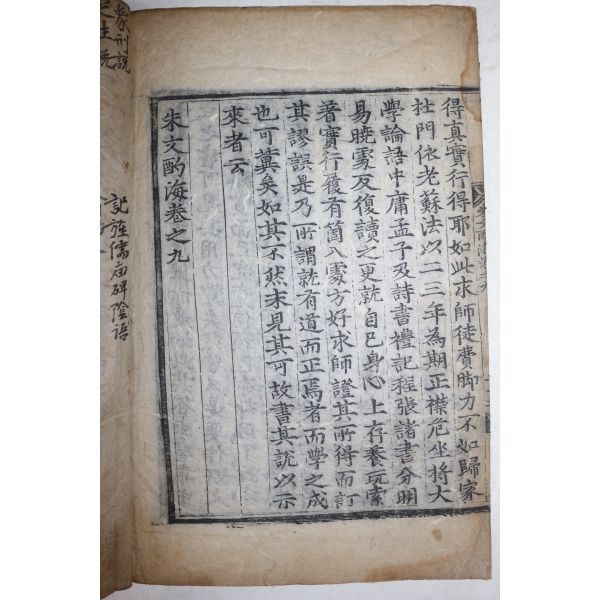 得真實行得耶如此求師徒費脚力不如歸家
杜門依老蘇法以二三年為期正襟危坐將大
學論語中庸孟子及詩書禮記程張諸書分明
易曉處反復讀之更就自己身心上存養玩索
著實行履有箇入處方好求師證其所得而訂
其謬誤是乃所謂就有道而正焉者而學之成
也可冀矣如其不然未見其可故書其說以示
來者云
朱文酌海卷之九
象刑說
記旌儒廟碑陰語